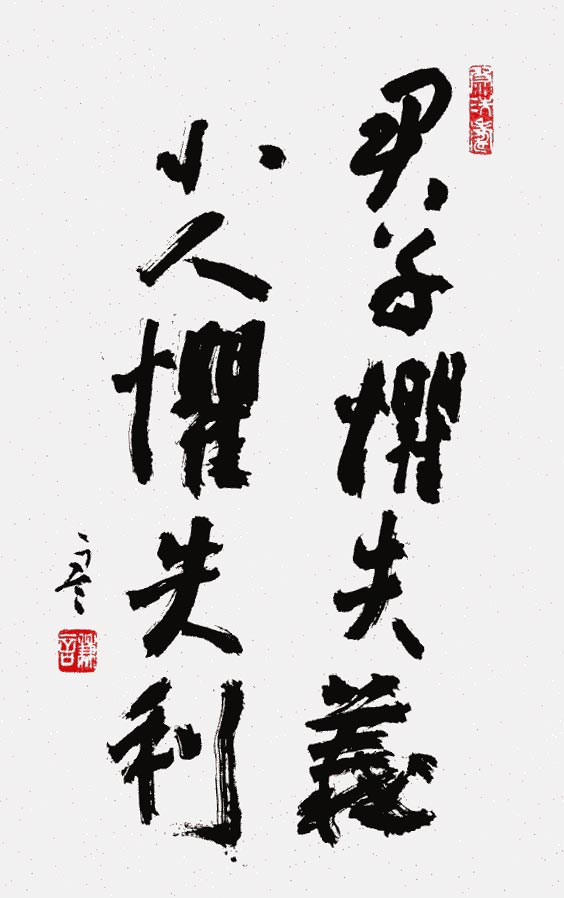 君子懼失義
小人懼失利